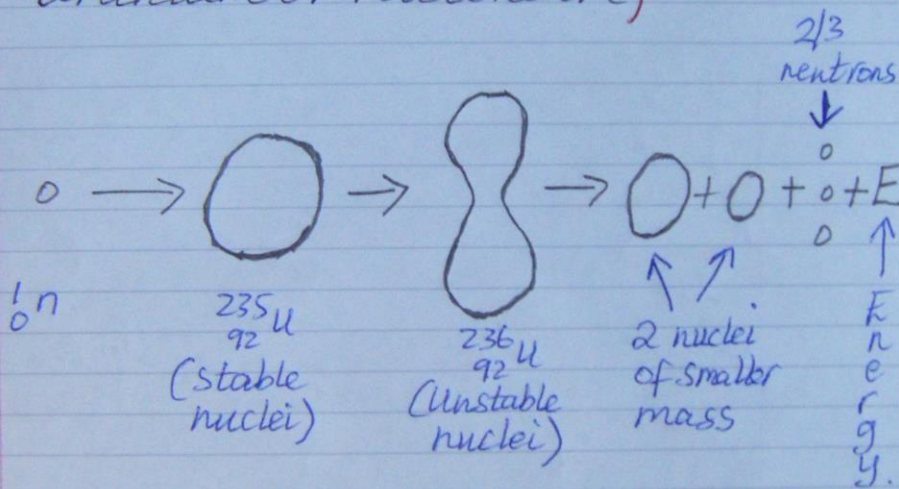 2/3
neutrons
+ + + E
1
0 n
235
92 U
(stable
nuclei)
236
92 U
(Unstable
nuclei)
2 nuclei
of smaller
mass
Energy.